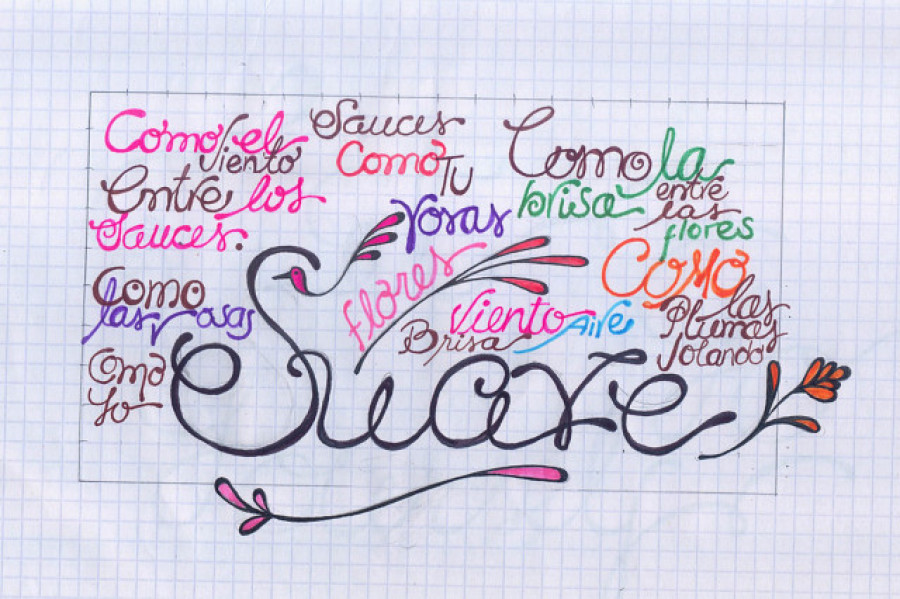 Como el
viento
Entre los
sauces.
Sauces
Como Tu
rosas
Como la
brisa entre
las
flores
Como
las rosas
Como
yo
flores
Viento
Brisa Aire
Como
las
Plumas
Volando
Suave